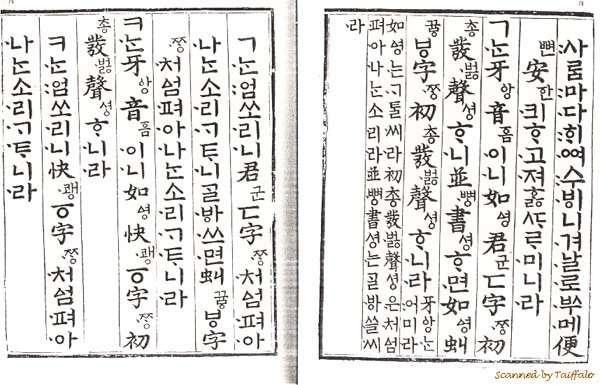 사ᄅᆞᆷ마다ᄒᆡᅇᅧ수ᄫᅵ니겨날로ᄡᅮ메便
뼌安한킈ᄒᆞ고져ᄒᆞᇙᄯᆞᄅᆞ미니라
ㄱᄂᆞᆫ牙앙音ᅙᅳᆷ이니如ᅀᅧᆼ君군ㄷ字ᄍᆞᆼ初
총發벓聲셩ᄒᆞ니並뼝書셩ᄒᆞ면如ᅀᅧᆼ虯
뀨ᇢㅸ字ᄍᆞᆼ初총發벓聲셩ᄒᆞ니라牙앙ᄂᆞᆫ어미라
如ᅀᅧᆼ는ᄀᆞᄐᆞᆯ씨라初총發벓聲셩은처ᅀᅥᆷ
펴아나ᄂᆞᆫ소리라並뼝書셩는ᄀᆞᆯᄫᅡ쓸씨
라
ㄱᄂᆞᆫ엄쏘리니君군ㄷ字ᄍᆞᆼ처ᅀᅥᆷ펴아
나ᄂᆞᆫ소리ᄀᆞᄐᆞ니ᄀᆞᆯᄫᅡ쓰면虯뀨ᇢㅸ字
ᄍᆞᆼ처ᅀᅥᆷ펴아나ᄂᆞᆫ소리ᄀᆞᄐᆞ니라
ㅋᄂᆞᆫ牙앙音ᅙᅳᆷ이니如ᅀᅧᆼ快쾡ㆆ字ᄍᆞᆼ初
총發벓聲셩ᄒᆞ니라
ㅋᄂᆞᆫ엄쏘리니快쾡ㆆ字ᄍᆞᆼ처ᅀᅥᆷ펴아
나ᄂᆞᆫ소리ᄀᆞᄐᆞ니라
Scanned by Taiffalo